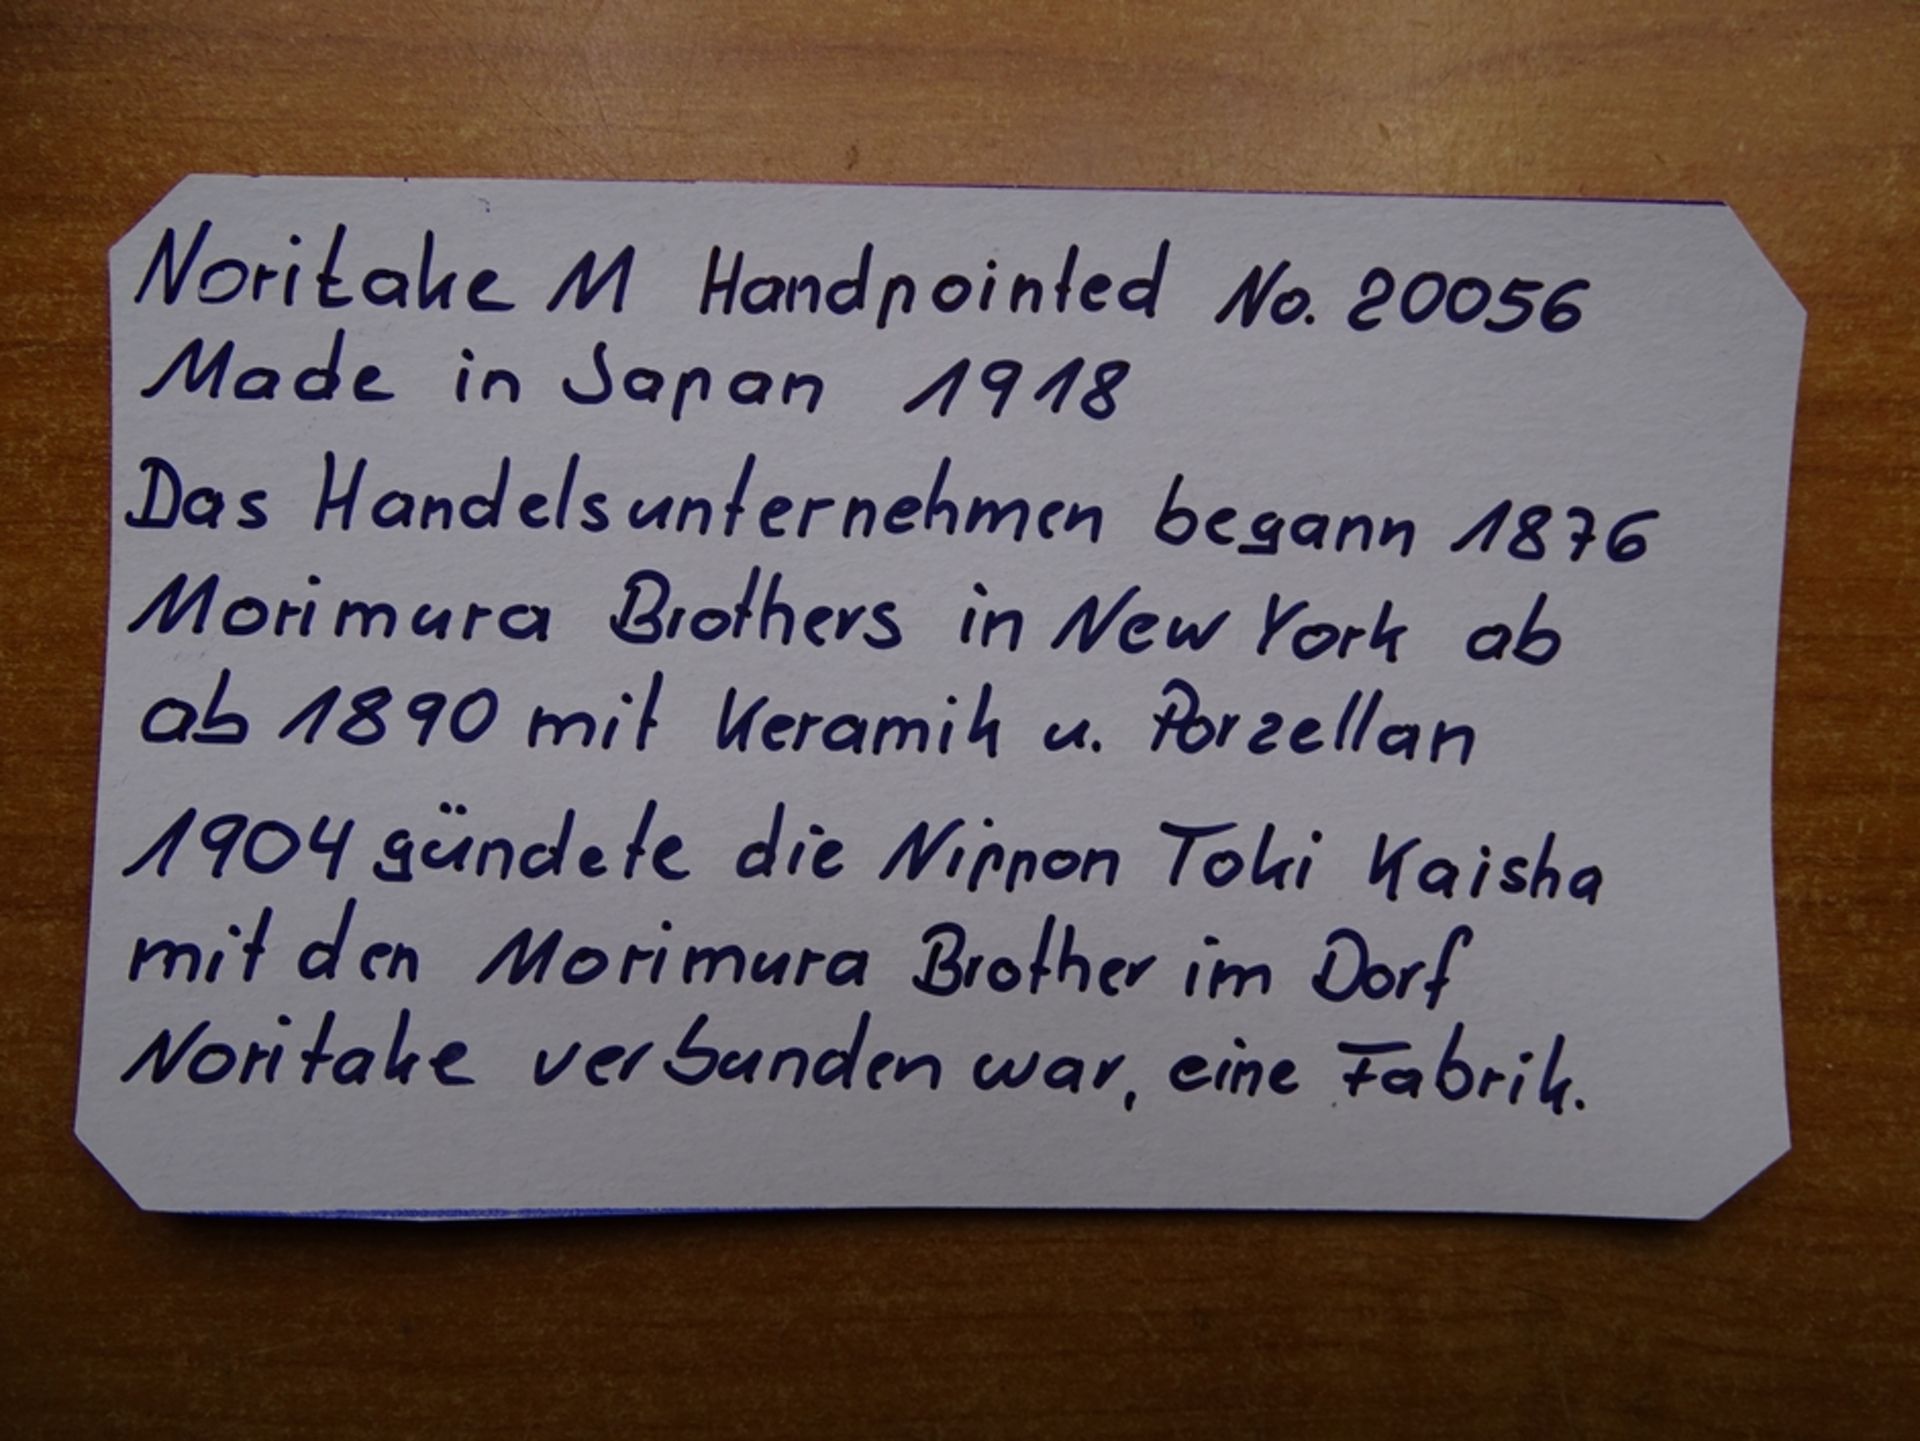 Noritake M Handpointed No. 20056
Made in Japan 1918
Das Handelsunternehmen begann 1876
Morimura Brothers in New York ab
ab 1890 mit Keramik u. Porzellan
1904 gündete die Nippon Toki Kaisha
mit den Morimura Brother im Dorf
Noritake verbunden war, eine Fabrik.